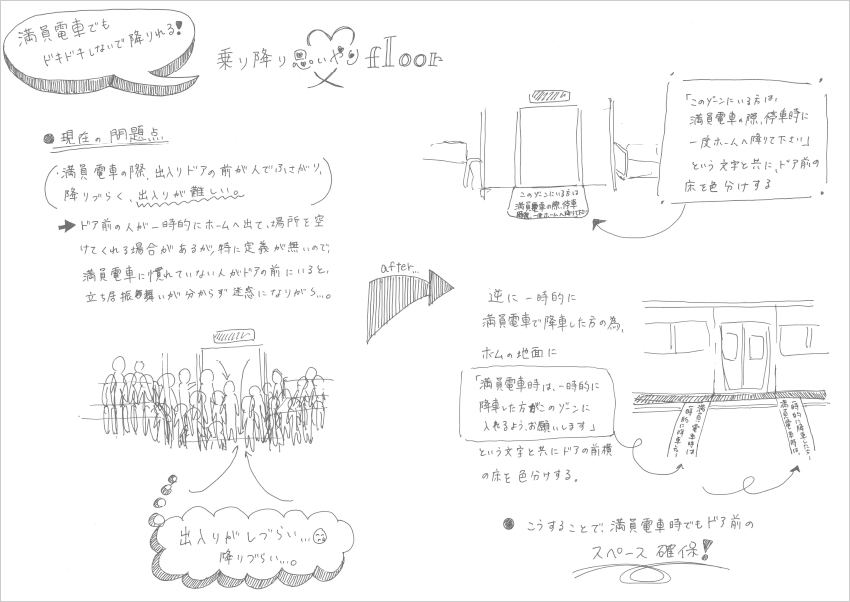 満員電車でも
ドキドキしないで降りれる!
乗り降り思いやりfloor
● 現在の問題点
・満員電車の際、出入りドアの前が人でふさがり、
降りづらく、出入りが難しい。
→ ドア前の人が一時的にホームへ出て、場所を空
けてくれる場合があるが、特に定義が無いので、
満員電車に慣れていない人がドアの前にいると、
立ち居振舞いが分からず迷惑になりがち…。
出入りがしづらい…
降りづらい…。
after...
このゾーンにいる方は
満員電車の際、停車
時、一度ホームへ降りて下さい
「このゾーンにいる方は、
満員電車の際、停車時に
一度ホームへ降りて下さい」
という文字と共に、ドア前の
床を色分けする
逆に一時的に
満員電車で降車した方の為、
ホムの地面に
「満員電車時は、一時的に
降車した方がこのゾーンに
入れるよう、お願いします」
という文字と共にドアの前横
の床を色分けする。
満員電車時は
一時的に降車した
一時的に降車した方
満員電車時は、
● こうすることで、満員電車時でもドア前の
スペース確保!